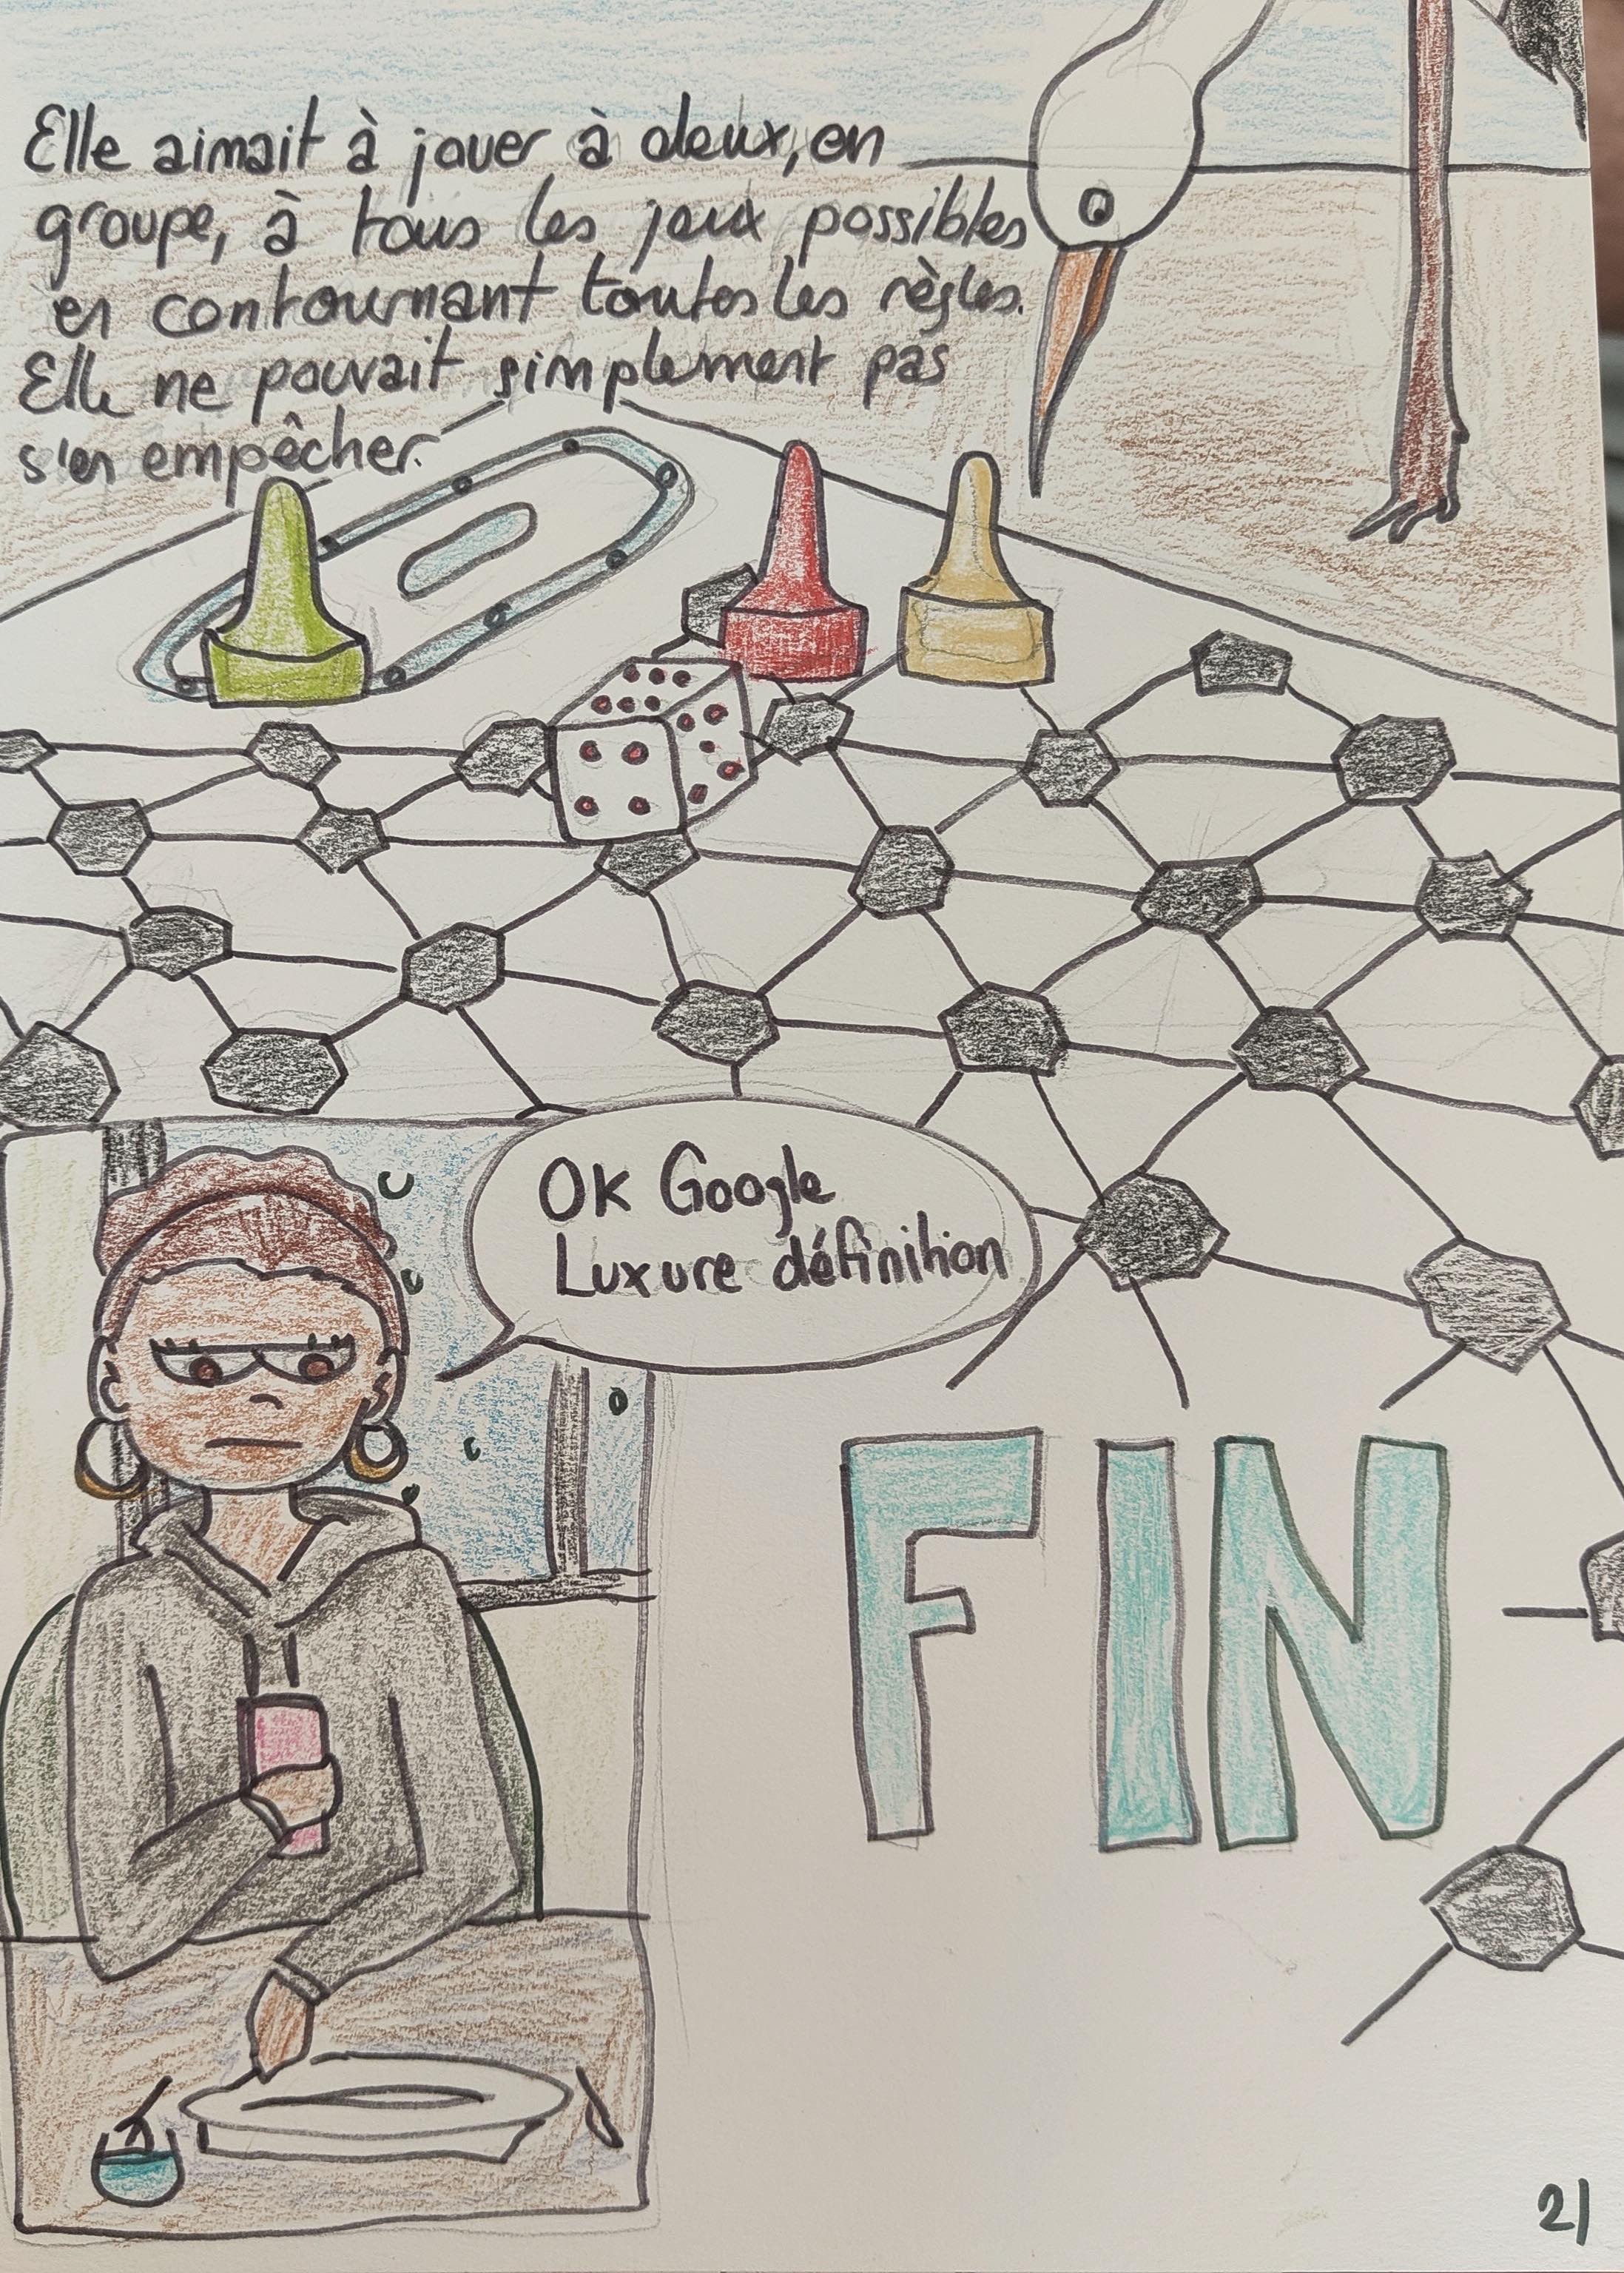 Elle aimait à jouer à deux, en
groupe, à tous les jeux possibles
en contournant toutes les règles.
Elle ne pouvait simplement pas
s'en empêcher.
OK Google
Luxure définition
FIN
21